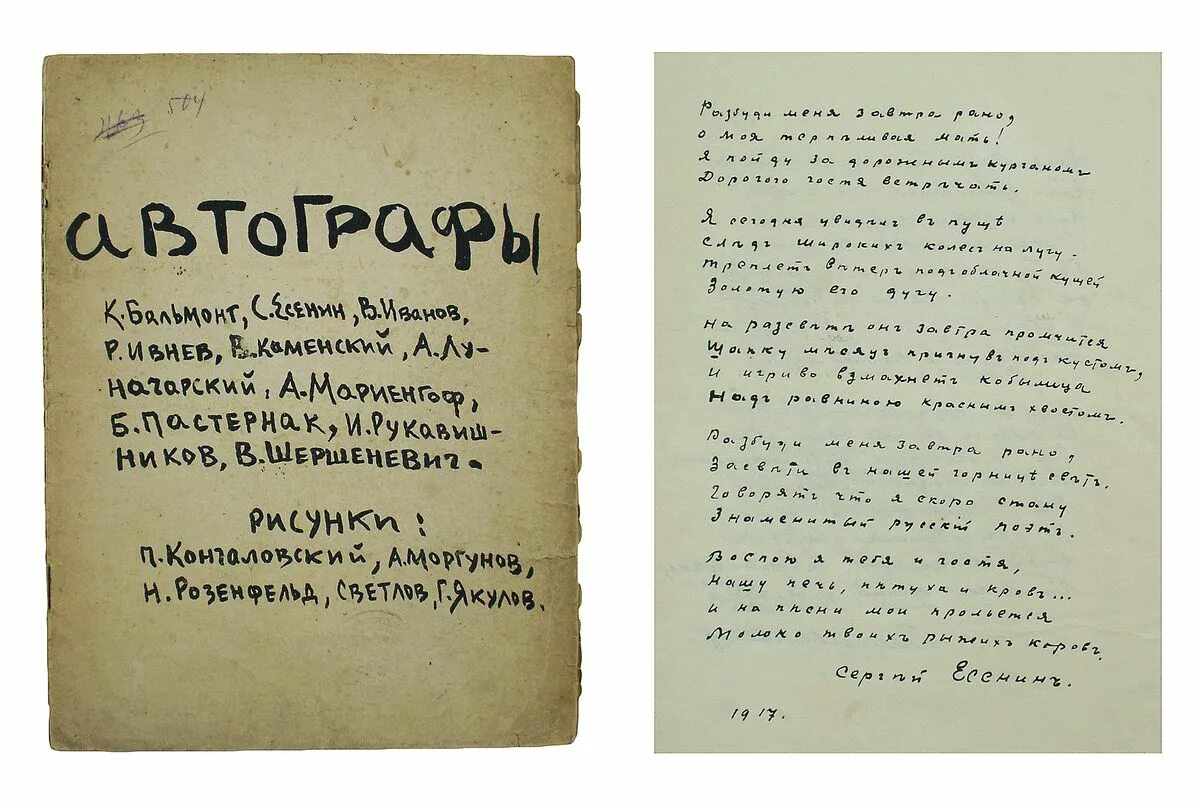 504
автографы
К. Бальмонт, С. Есенин, В. Иванов,
Р. Ивнев, В. Каменский, А. Лу-
начарский, А. Мариенгоф,
Б. Пастернак, И. Рукавиш-
ников, В. Шершеневич.
рисунки:
П. Кончаловский, А. Моргунов,
Н. Розенфельд, Светлов, Г. Якулов.
Разбуди меня завтра рано,
о моя терпѣливая мать!
Я пойду за дорожнымъ курганомъ
Дорогого гостя встрѣчать.
Я сегодня увидилъ въ пущѣ
Слѣдъ широкихъ колесъ на лугу.
Треплетъ вѣтеръ подъ облачной кущей
Золотую его дугу.
На разсвѣтѣ онъ завтра промчится
Шапку мѣсяцъ пригнувъ подъ кустомъ,
И игриво взмахнетъ кобылица
Надъ равниною краснымъ хвостомъ.
Разбуди меня завтра рано,
Засвѣти въ нашей горницѣ свѣтъ.
Говорятъ что я скоро стану
Знаменитый русскій поэтъ.
Воспою я тебя и гостя,
Нашу печь, пѣтуха и кровъ...
И на пѣсни мои прольется
Молоко твоихъ рыжихъ коровъ.
Сергѣй Есенинъ.
1917.